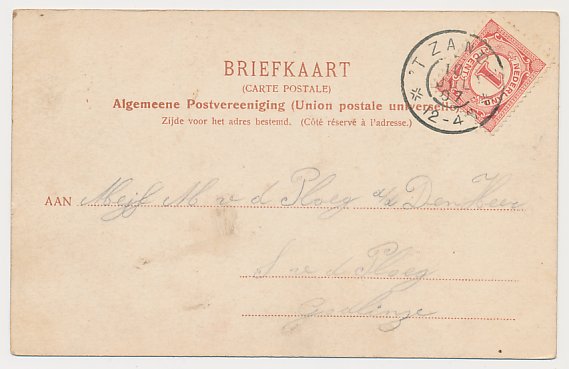 BRIEFKAART
(CARTE POSTALE)
Algemeene Postvereeniging (Union postale universelle)
Zijde voor het adres bestemd. (Côté réservé à l'adresse.)
'T ZAND
12-4
NEDERLAND
1
CENT
AAN Mejf M v d Ploeg a/d Den Heer
S v d Ploeg
Godlinze